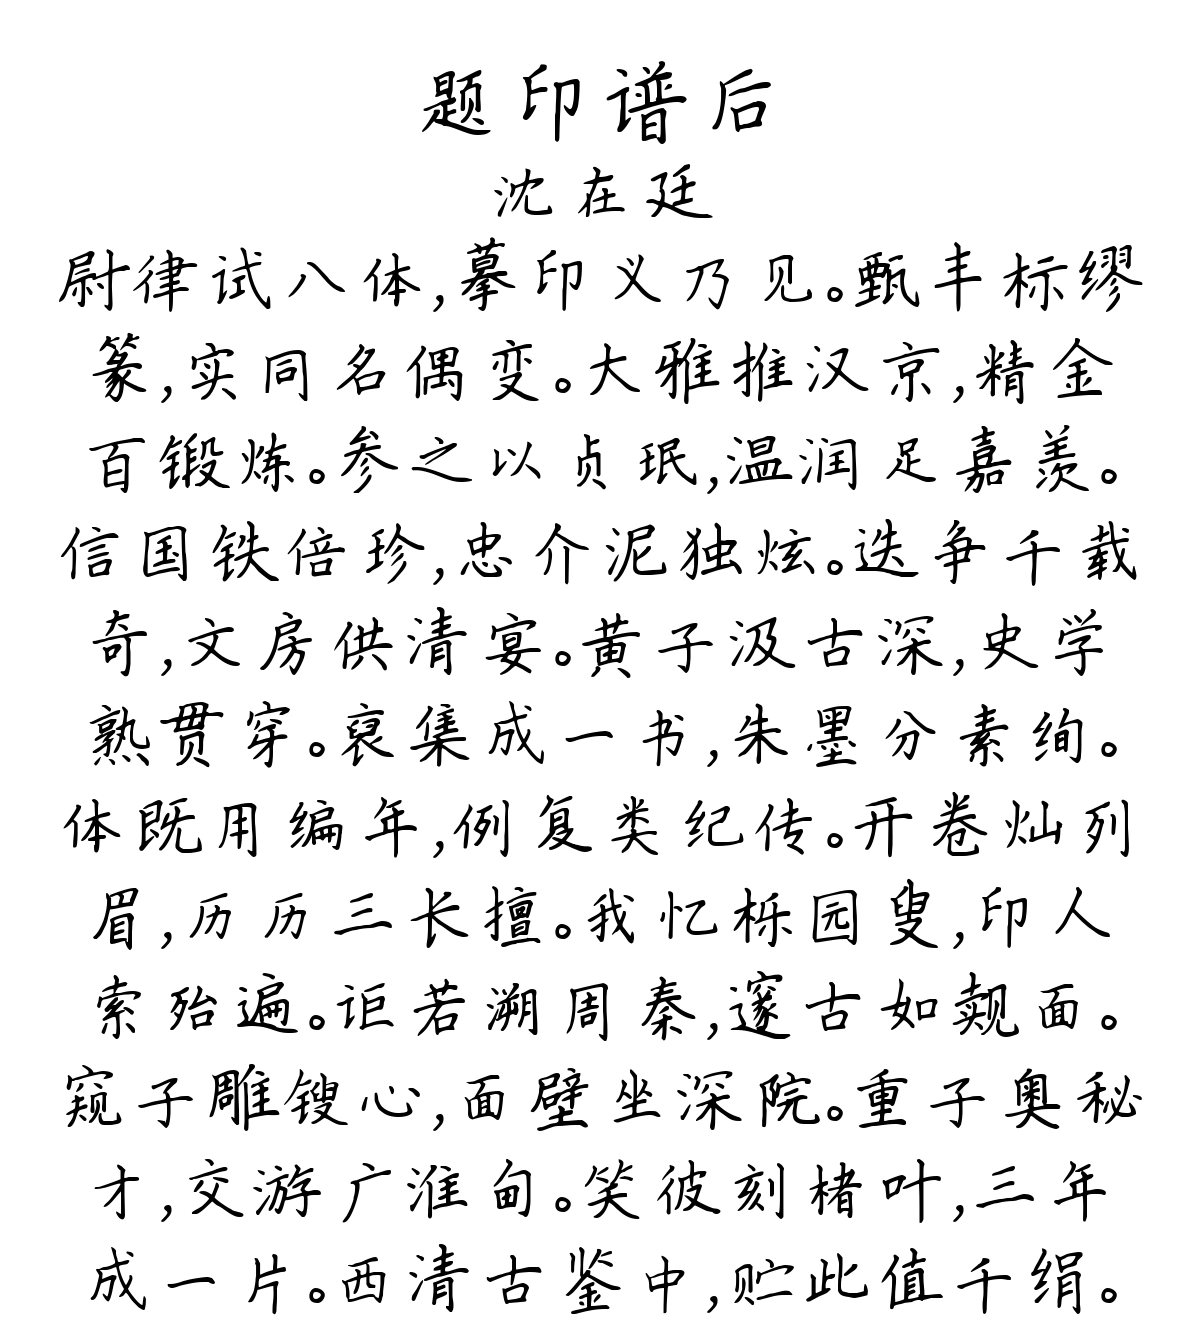 题印谱后
沈在廷
尉律试八体,摹印义乃见。甄丰标缪
篆,实同名偶变。大雅推汉京,精金
百锻炼。参之以贞珉,温润足嘉羡。
信国铁倍珍,忠介泥独炫。迭争千载
奇,文房供清宴。黄子汲古深,史学
熟贯穿。裒集成一书,朱墨分素绚。
体既用编年,例复类纪传。开卷灿列
眉,历历三长擅。我忆栎园叟,印人
索殆遍。讵若溯周秦,邃古如觌面。
窥子雕锼心,面壁坐深院。重子奥秘
才,交游广淮甸。笑彼刻楮叶,三年
成一片。西清古鉴中,贮此值千绢。